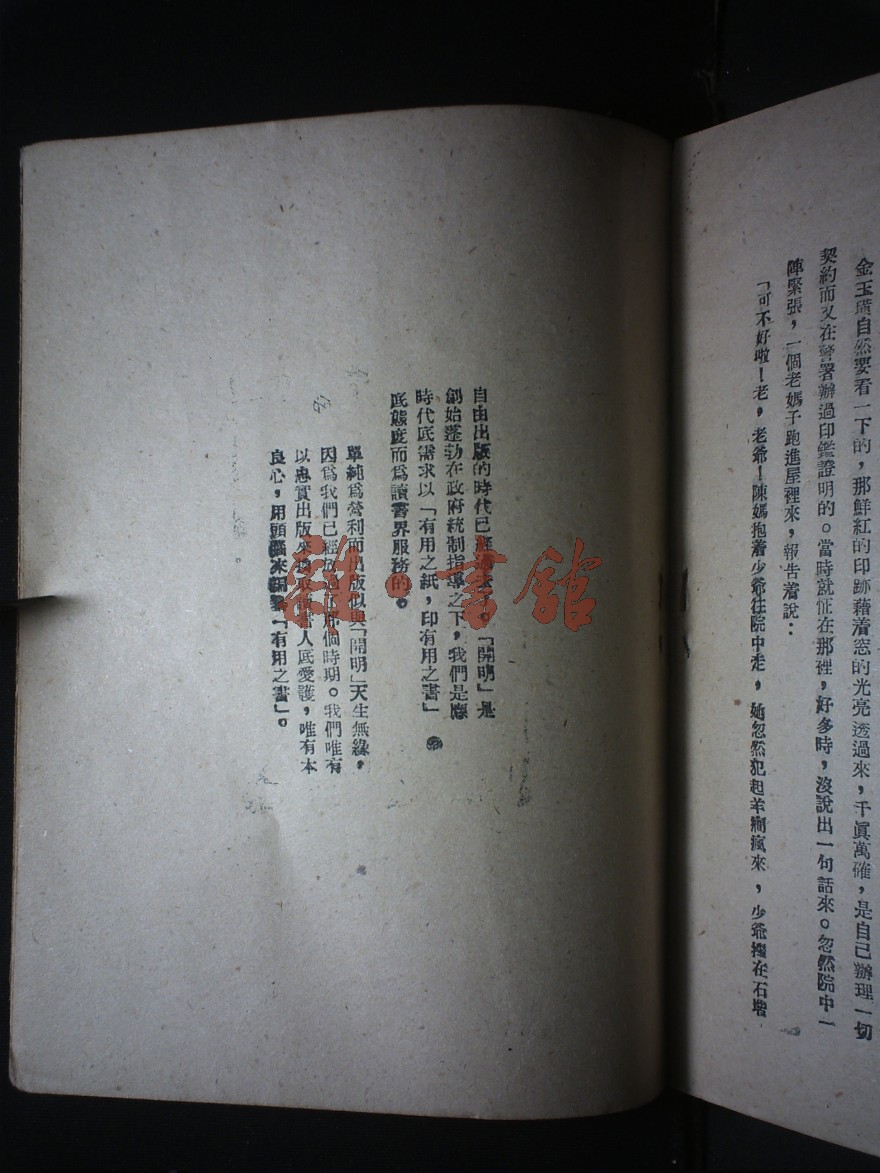 金玉璞自然要看一下的，那鮮紅的印跡藉着窓的光亮透過來，千眞萬確，是自己辦理一切
契約而又在警署辦過印鑑證明的。當時就怔在那裡，好多時，沒說出一句話來。忽然院中一
陣緊張，一個老媽子跑進屋裡來，報告着說：
「可不好啦！老，老爺！陳媽抱着少爺往院中走，她忽然犯起羊癎瘋來，少爺摔在石堦
自由出版的時代已經過去了。「開明」是
創始蓬勃在政府統制指導之下，我們是應
時代底需求以「有用之紙，印有用之書」
底態度而爲讀書界服務的。
單純爲營利而出版似與「開明」天生無緣，
因爲我們已經放過了那個時期。我們唯有
以忠實出版來換取讀書人底愛護，唯有本
良心，用頭腦來開鑿「有用之書」。
雜·書館